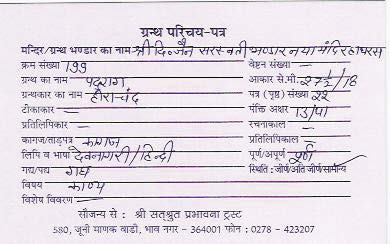 ग्रन्थ परिचय-पत्र
मन्दिर/ग्रन्थ भण्डार का नाम श्री दि० जैन सरस्वती भण्डार नया मंदिर हाथरस
क्रम संख्या 199 वेष्टन संख्या —
ग्रन्थ का नाम पदराग आकार से.मी. 27½/18
ग्रन्थकार का नाम हीराचंद पत्र (पृष्ठ) संख्या 22
टीकाकार — पंक्ति अक्षर 13/
प्रतिलिपिकार — रचनाकाल —
कागज/ताड़पत्र कागज प्रतिलिपिकाल —
लिपि व भाषा देवनागरी/हिन्दी पूर्ण/अपूर्ण पूर्ण
गद्य/पद्य गद्य स्थिति : जीर्ण/अति जीर्ण/सामान्य
विषय काव्य
विशेष विवरण —
सौजन्य से : श्री सत्श्रुत प्रभावना ट्रस्ट
580, जूनी माणक वाडी, भाव नगर - 364001 फोन : 0278 - 423207